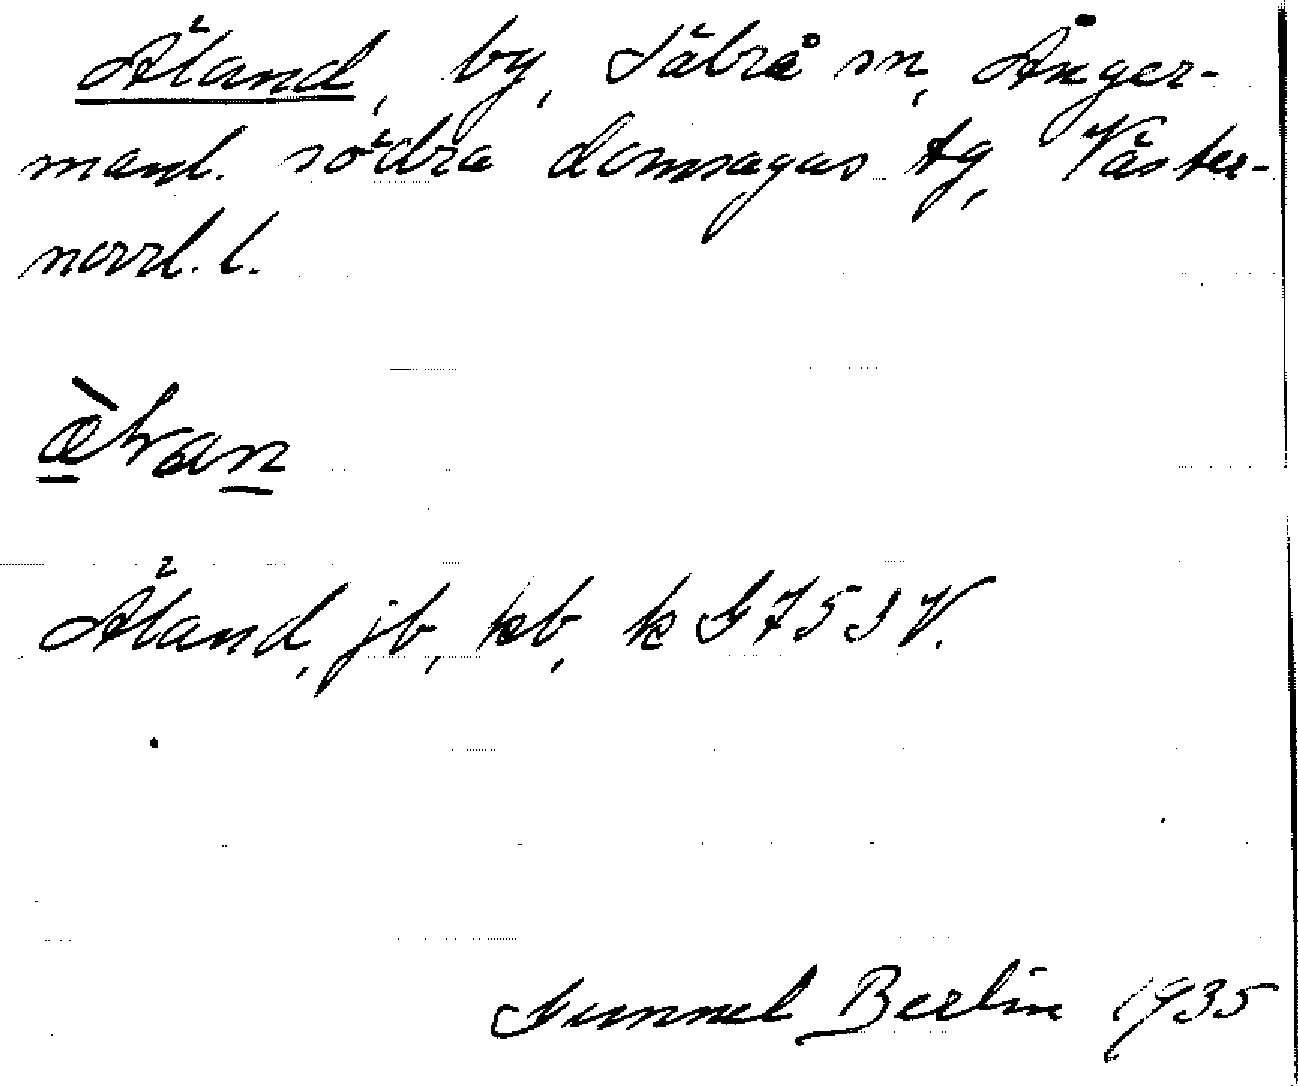 Äland, by, Säbrå sn, Ånger-
manl. södra domsagas tg, Väster-
norrl. l.
Äland, jb, kb, k G 75 S V.
Gunnel Berlin 1935